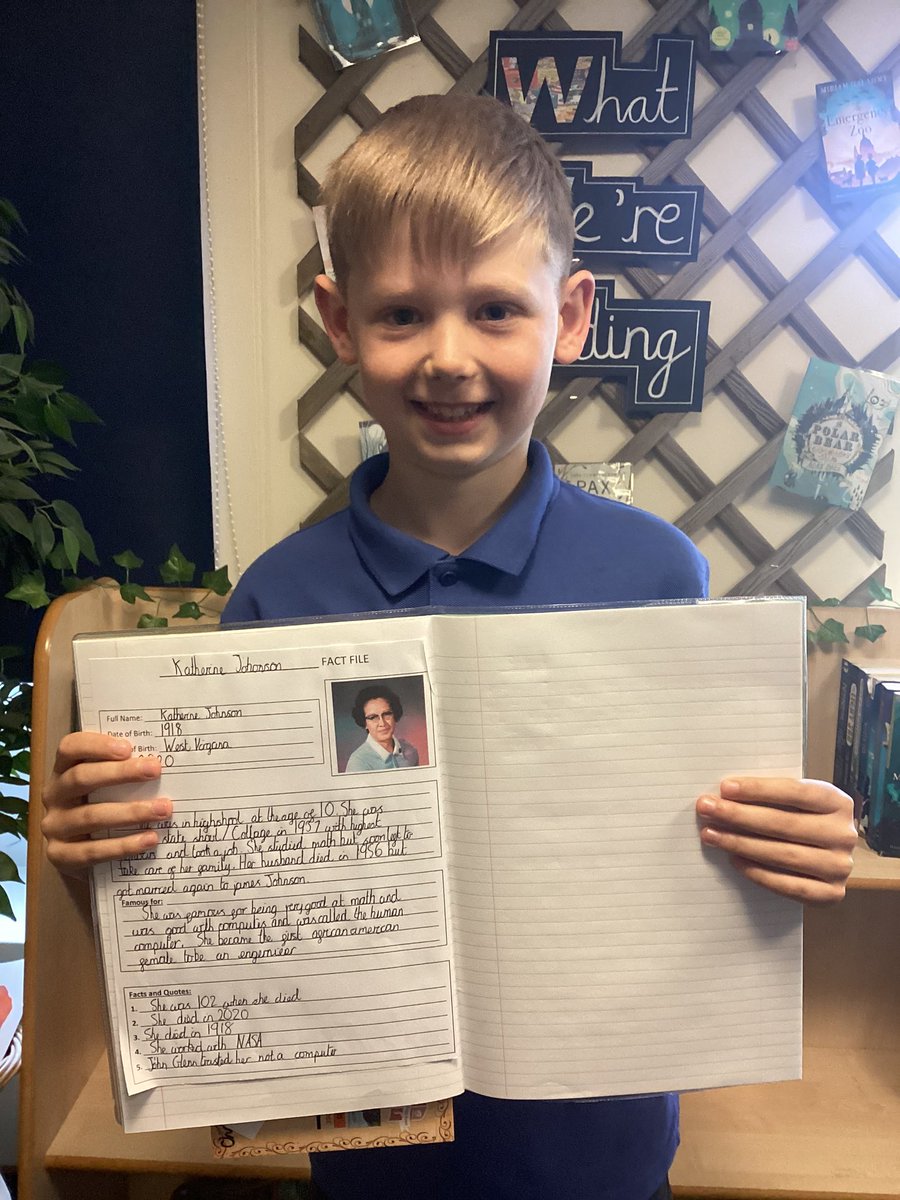 What
e're
ding
MIRIAM HALAHMY
Emergency
Zoo
POLAR
BEAR
PAX
Katherine Johonson FACT FILE
Full Name: Katherine Johnson
Date of Birth: 1918
of Birth: West Virgana
20
was in highshool at the age of 10. She was
state shoul / Collage in 1937 with highest
and took a job. She studied math but soon left to
take care of her family. Her husband died in 1956 but
got married again to James Johnson.
Famous for:
She was famous for being very good at math and
was good with computis and was called the human
computer. She became the first african american
female to be an engenieer
Facts and Quotes:
1. She was 102 when she died
2. She died in 2020
3. She died in 1918
4. She worked with NASA
5. John Glenn trusted her not a computer